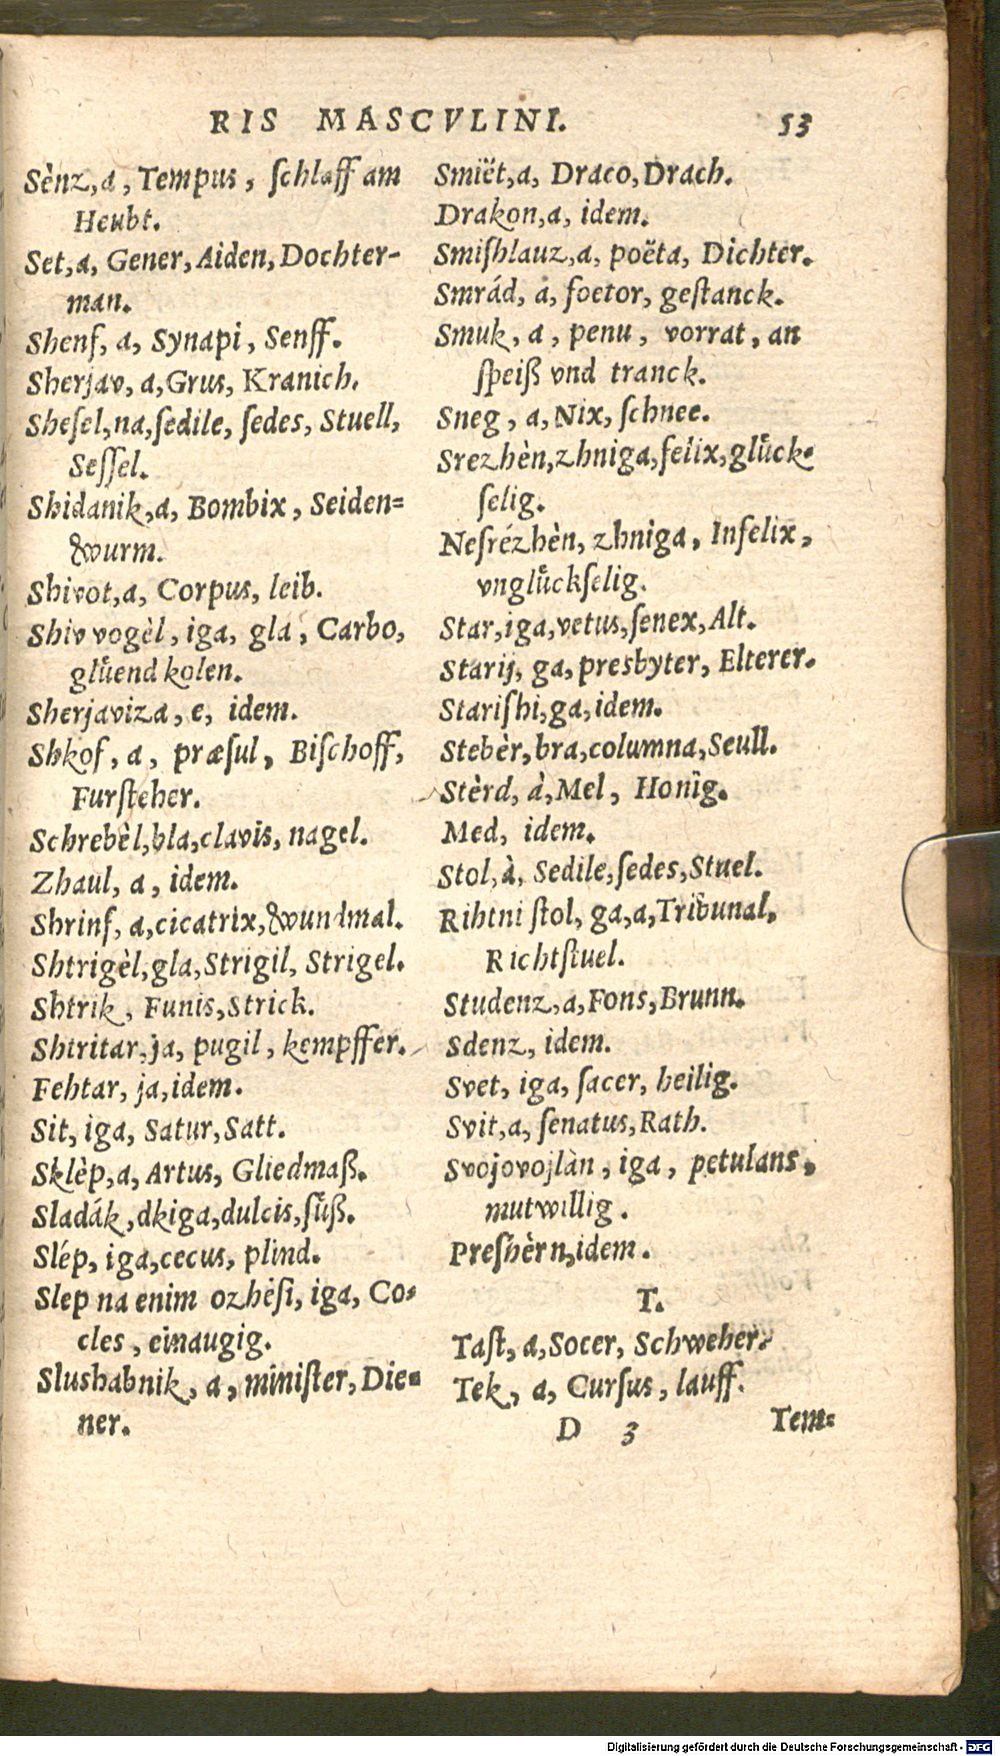 RIS MASCVLINI. 53
Sènz,a, Tempus, ſchlaff am
Heubt.
Set,a, Gener, Aiden, Dochter-
man.
Shenf, a, Synapi, Senff.
Sherjav, a,Grus, Kranich.
Sheſel,na,ſedile, ſedes, Stuell,
Seſſel.
Shidanik,a, Bombix, Seiden=
wurm.
Shivot,a, Corpus, leib.
Shiv vogèl, iga, gla, Carbo,
glůend kolen.
Sherjaviza, e, idem.
Shkof, a, præſul, Biſchoff,
Furſteher.
Schrebèl,bla,clavis, nagel.
Zhaul, a, idem.
Shrinf, a,cicatrix,wundmal.
Shtrigèl,gla,Strigil, Strigel.
Shtrik, Funis,Strick.
Shtritar,ja, pugil, kempffer.
Fehtar, ja,idem.
Sit, iga, Satur,Satt.
Sklèp,a, Artus, Gliedmaß.
Sladák,dkiga,dulcis,ſůß.
Slép, iga,cecus, plind.
Slep na enim ozhèſi, iga, Co-
cles, einaugig.
Slushabnik, a, miniſter, Die=
ner.
Smiët,a, Draco,Drach.
Drakon,a, idem.
Smiſhlauz,a, poëta, Dichter.
Smrád, a, foetor, geſtanck.
Smuk, a, penu, vorrat, an
ſpeiß vnd tranck.
Sneg, a, Nix, ſchnee.
Srezhèn,zhniga,felix,glůck-
ſelig.
Neſrézhèn, zhniga, Infelix,
vnglůckſelig.
Star,iga,vetus,ſenex,Alt.
Starij, ga,presbyter, Elterer.
Stariſhi,ga,idem.
Stebèr,bra,columna,Seull.
Stèrd, à,Mel, Honîg.
Med, idem.
Stol,à, Sedile,ſedes,Stuel.
Rihtni ſtol, ga,a,Tribunal,
Richtſtuel.
Studenz,a,Fons,Brunn.
Sdenz, idem.
Svet, iga, ſacer, heilig.
Svit,a, ſenatus,Rath.
Svojovojlàn, iga, petulans,
mutwillig.
Preſhèrn,idem.
T.
Taſt, a,Socer, Schweher.
Tek, a, Curſus, lauff.
D 3 Tem=
Digitalisierung gefördert durch die Deutsche Forschungsgemeinschaft - DFG